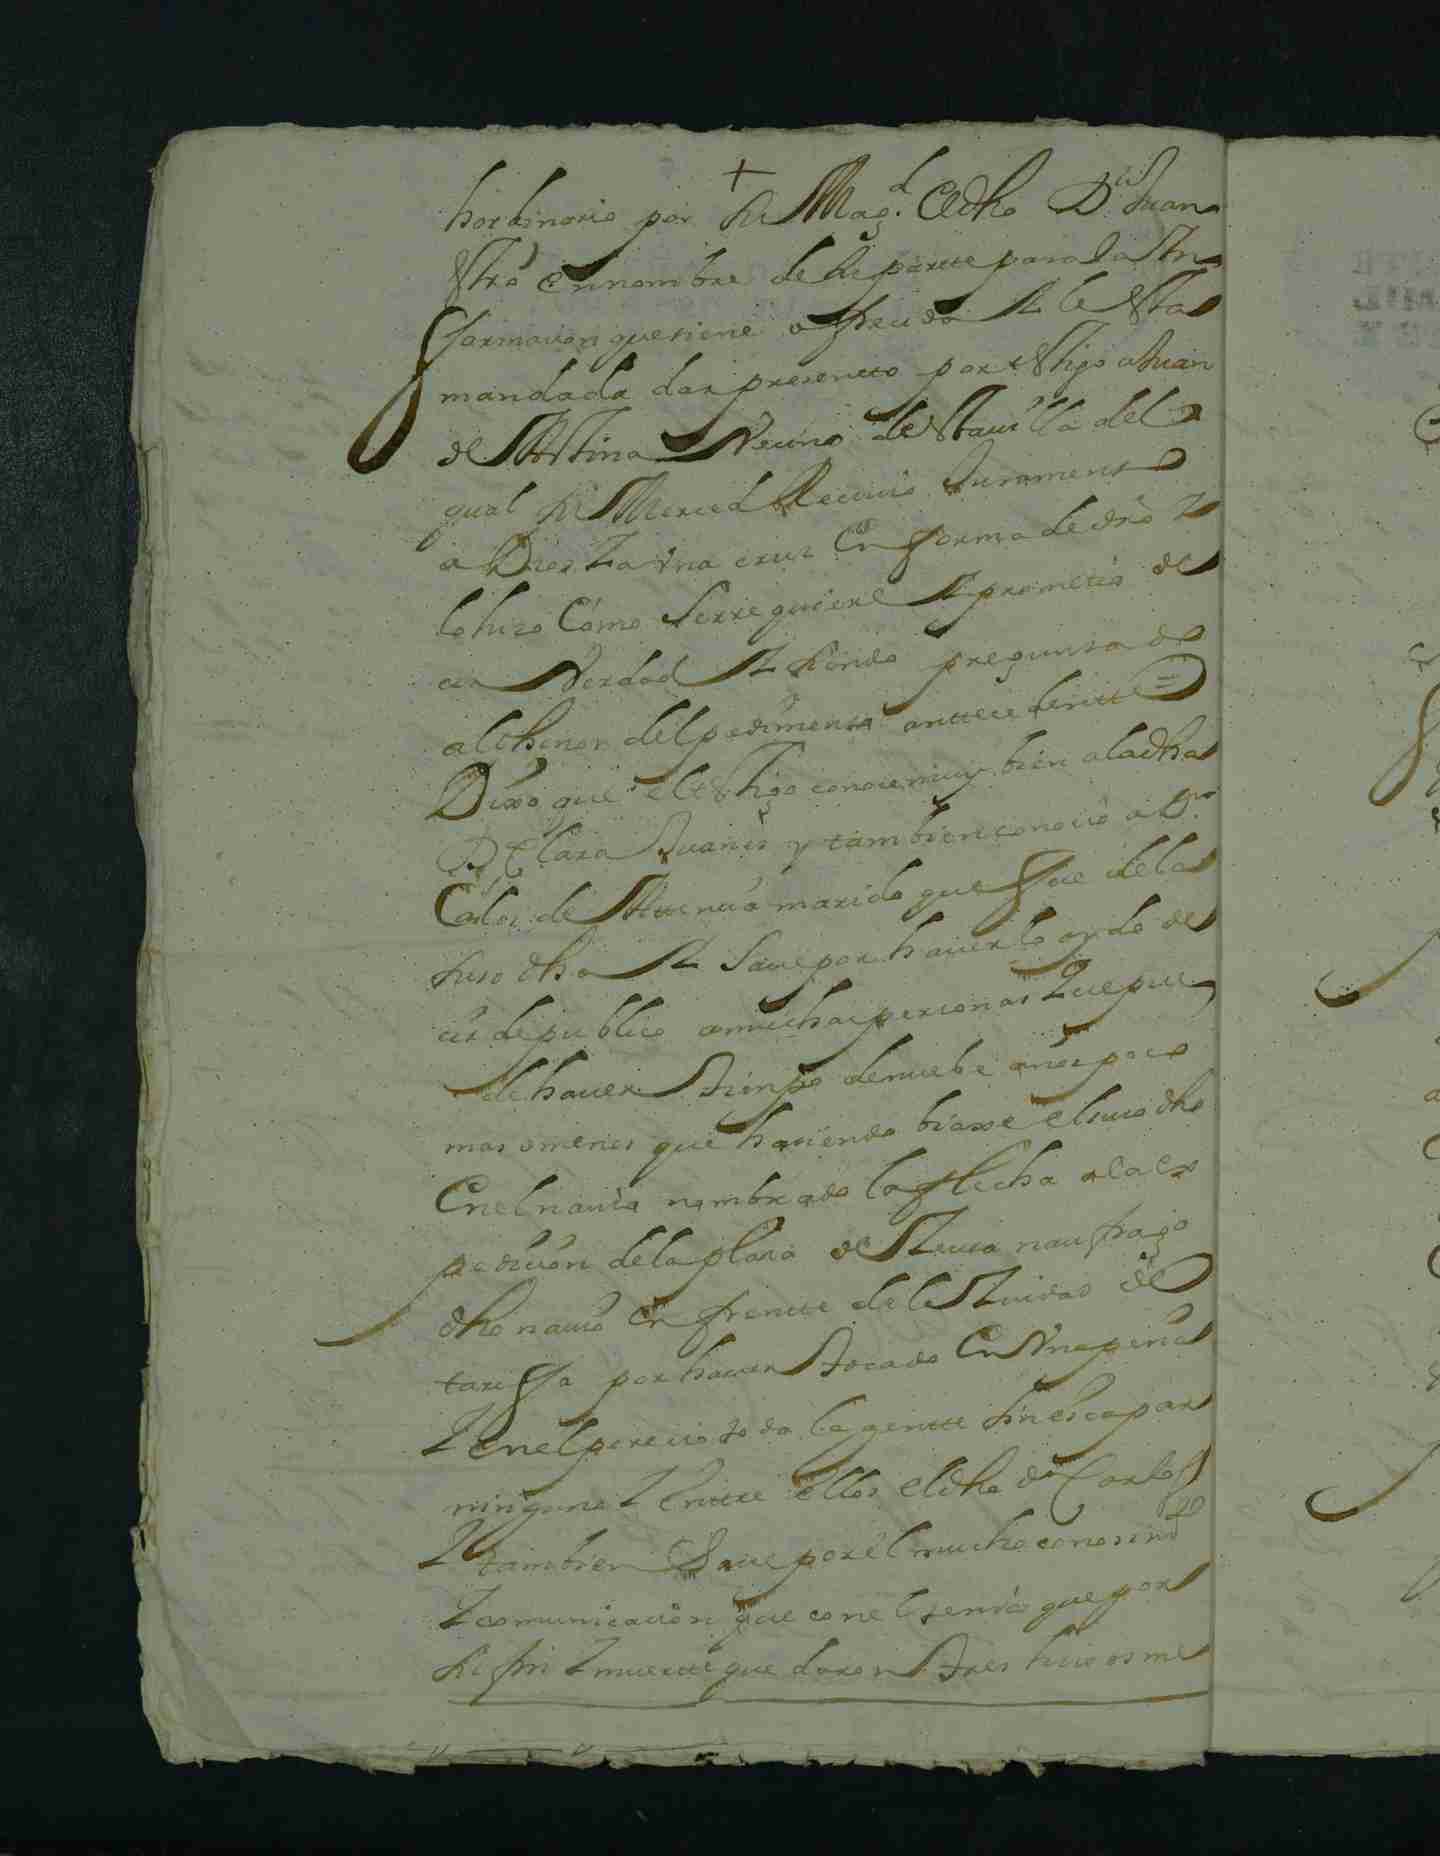 +
hordinario por su Mag.d El dho D.n Juan
en nombre de su partte para la In
formacion que tiene ofrecida y le esta
mandada dar presentto por testigo a Juan
de Vecino de esta uilla del
qual su Merced Reciuio Juramento
a Dios y a Vna cruz En forma de dro y
lo hizo Como Serrequiere y prometio de
cir Verdad y siendo preguntado
al thenor del pedimento anttecedentte =
Dixo que el testigo conoce muy bien a la dha
D.a Clara Juanis y tambien conocio a D.n
Carlos de marido que fue de la
suso dha y saue por hauerlo oydo de
cir de publico a muchas personas Que pue
de hauer tiempo de nuebe años poco
mas o menos que haciendo biaxe el suso dho
En el nauio nombrado la flecha a la ex
pedicion de la plaza de Zeuta naufrago
dho nauio En frentte de la Ziudad de
tariffa por hauer tocado En Vna peña
Y en el perecio toda la gentte sin escapar
ninguno Y Enttre ellos el dho d.n Carlos
Y tambien Saue por el mucho conosim.to
Y comunicacion que con el tenia que por
su fin Y muertte quedaron tres hixos me